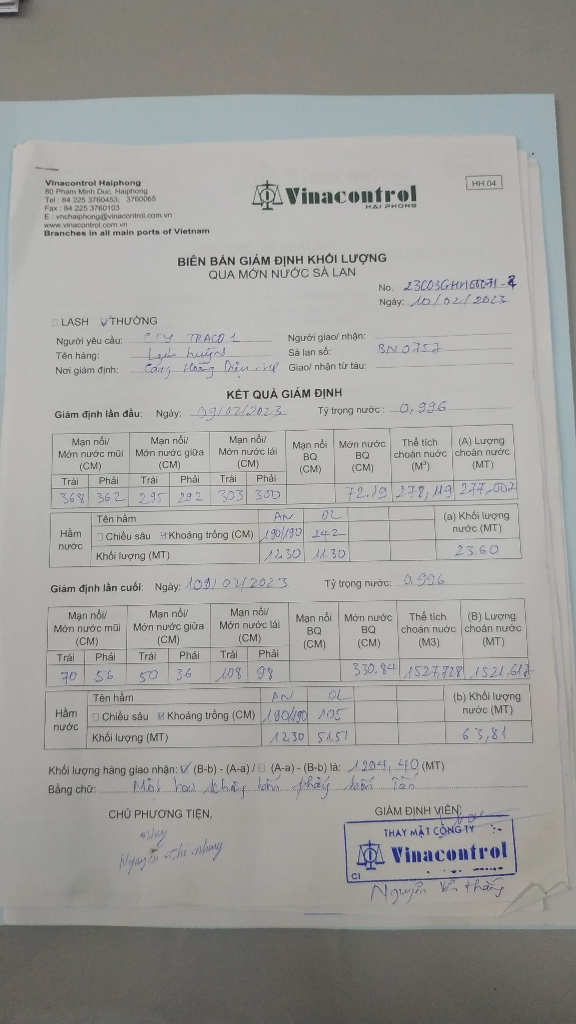 Vinacontrol Haiphong
80 Pham Minh Duc, Haiphong
Tel : 84 225 3760453; 3760065
Fax : 84 225 3760103
E : vnchaiphong@vinacontrol.com.vn
www.vinacontrol.com.vn
Branches in all main ports of Vietnam
Vinacontrol
HAI PHONG
HH.04
BIÊN BẢN GIÁM ĐỊNH KHỐI LƯỢNG
QUA MỚN NƯỚC SÀ LAN
No.
Ngày: 10/02/2023
LASH THƯỜNG
Người yêu cầu: CTY TRACO 1 Người giao/ nhận:
Tên hàng: Sà lan số: BN 0757
Nơi giám định: Cảng Hoàng Diệu Giao/ nhận từ tàu:
KẾT QUẢ GIÁM ĐỊNH
Giám định lần đầu: Ngày: 09/02/2023 Tỷ trọng nước : 0,996
Mạn nổi/ Mớn nước mũi (CM) Mạn nổi/ Mớn nước giữa (CM) Mạn nổi/ Mớn nước lái (CM) Mạn nổi BQ (CM) Mớn nước BQ (CM) Thể tích choán nước (M3) (A) Lượng choán nước (MT)
Trái Phải Trái Phải Trái Phải
368 362 295 292 303 300 72.19 278,119 277.007
Hầm nước Tên hầm AN DL (a) Khối lượng nước (MT)
Chiều sâu Khoảng trống (CM) 190/190 242
Khối lượng (MT) 12.30 11.30 23.60
Giám định lần cuối: Ngày: 109/02/2023 Tỷ trọng nước: 0.996
Mạn nổi/ Mớn nước mũi (CM) Mạn nổi/ Mớn nước giữa (CM) Mạn nổi/ Mớn nước lái (CM) Mạn nổi BQ (CM) Mớn nước BQ (CM) Thể tích choán nước (M3) (B) Lượng choán nước (MT)
Trái Phải Trái Phải Trái Phải
70 56 50 36 108 98 330.84 1527,728 1521.617
Hầm nước Tên hầm AN DL (b) Khối lượng nước (MT)
Chiều sâu Khoảng trống (CM) 190/190 105
Khối lượng (MT) 12.30 51.51 63,81
Khối lượng hàng giao nhận: (B-b) - (A-a) / (A-a) - (B-b) là: 1204,40 (MT)
Bằng chữ: Một
CHỦ PHƯƠNG TIỆN, GIÁM ĐỊNH VIÊN,
Nguyễn Chí Nhung
THAY MẶT CÔNG TY
Vinacontrol
CI
Nguyễn Văn Thắng